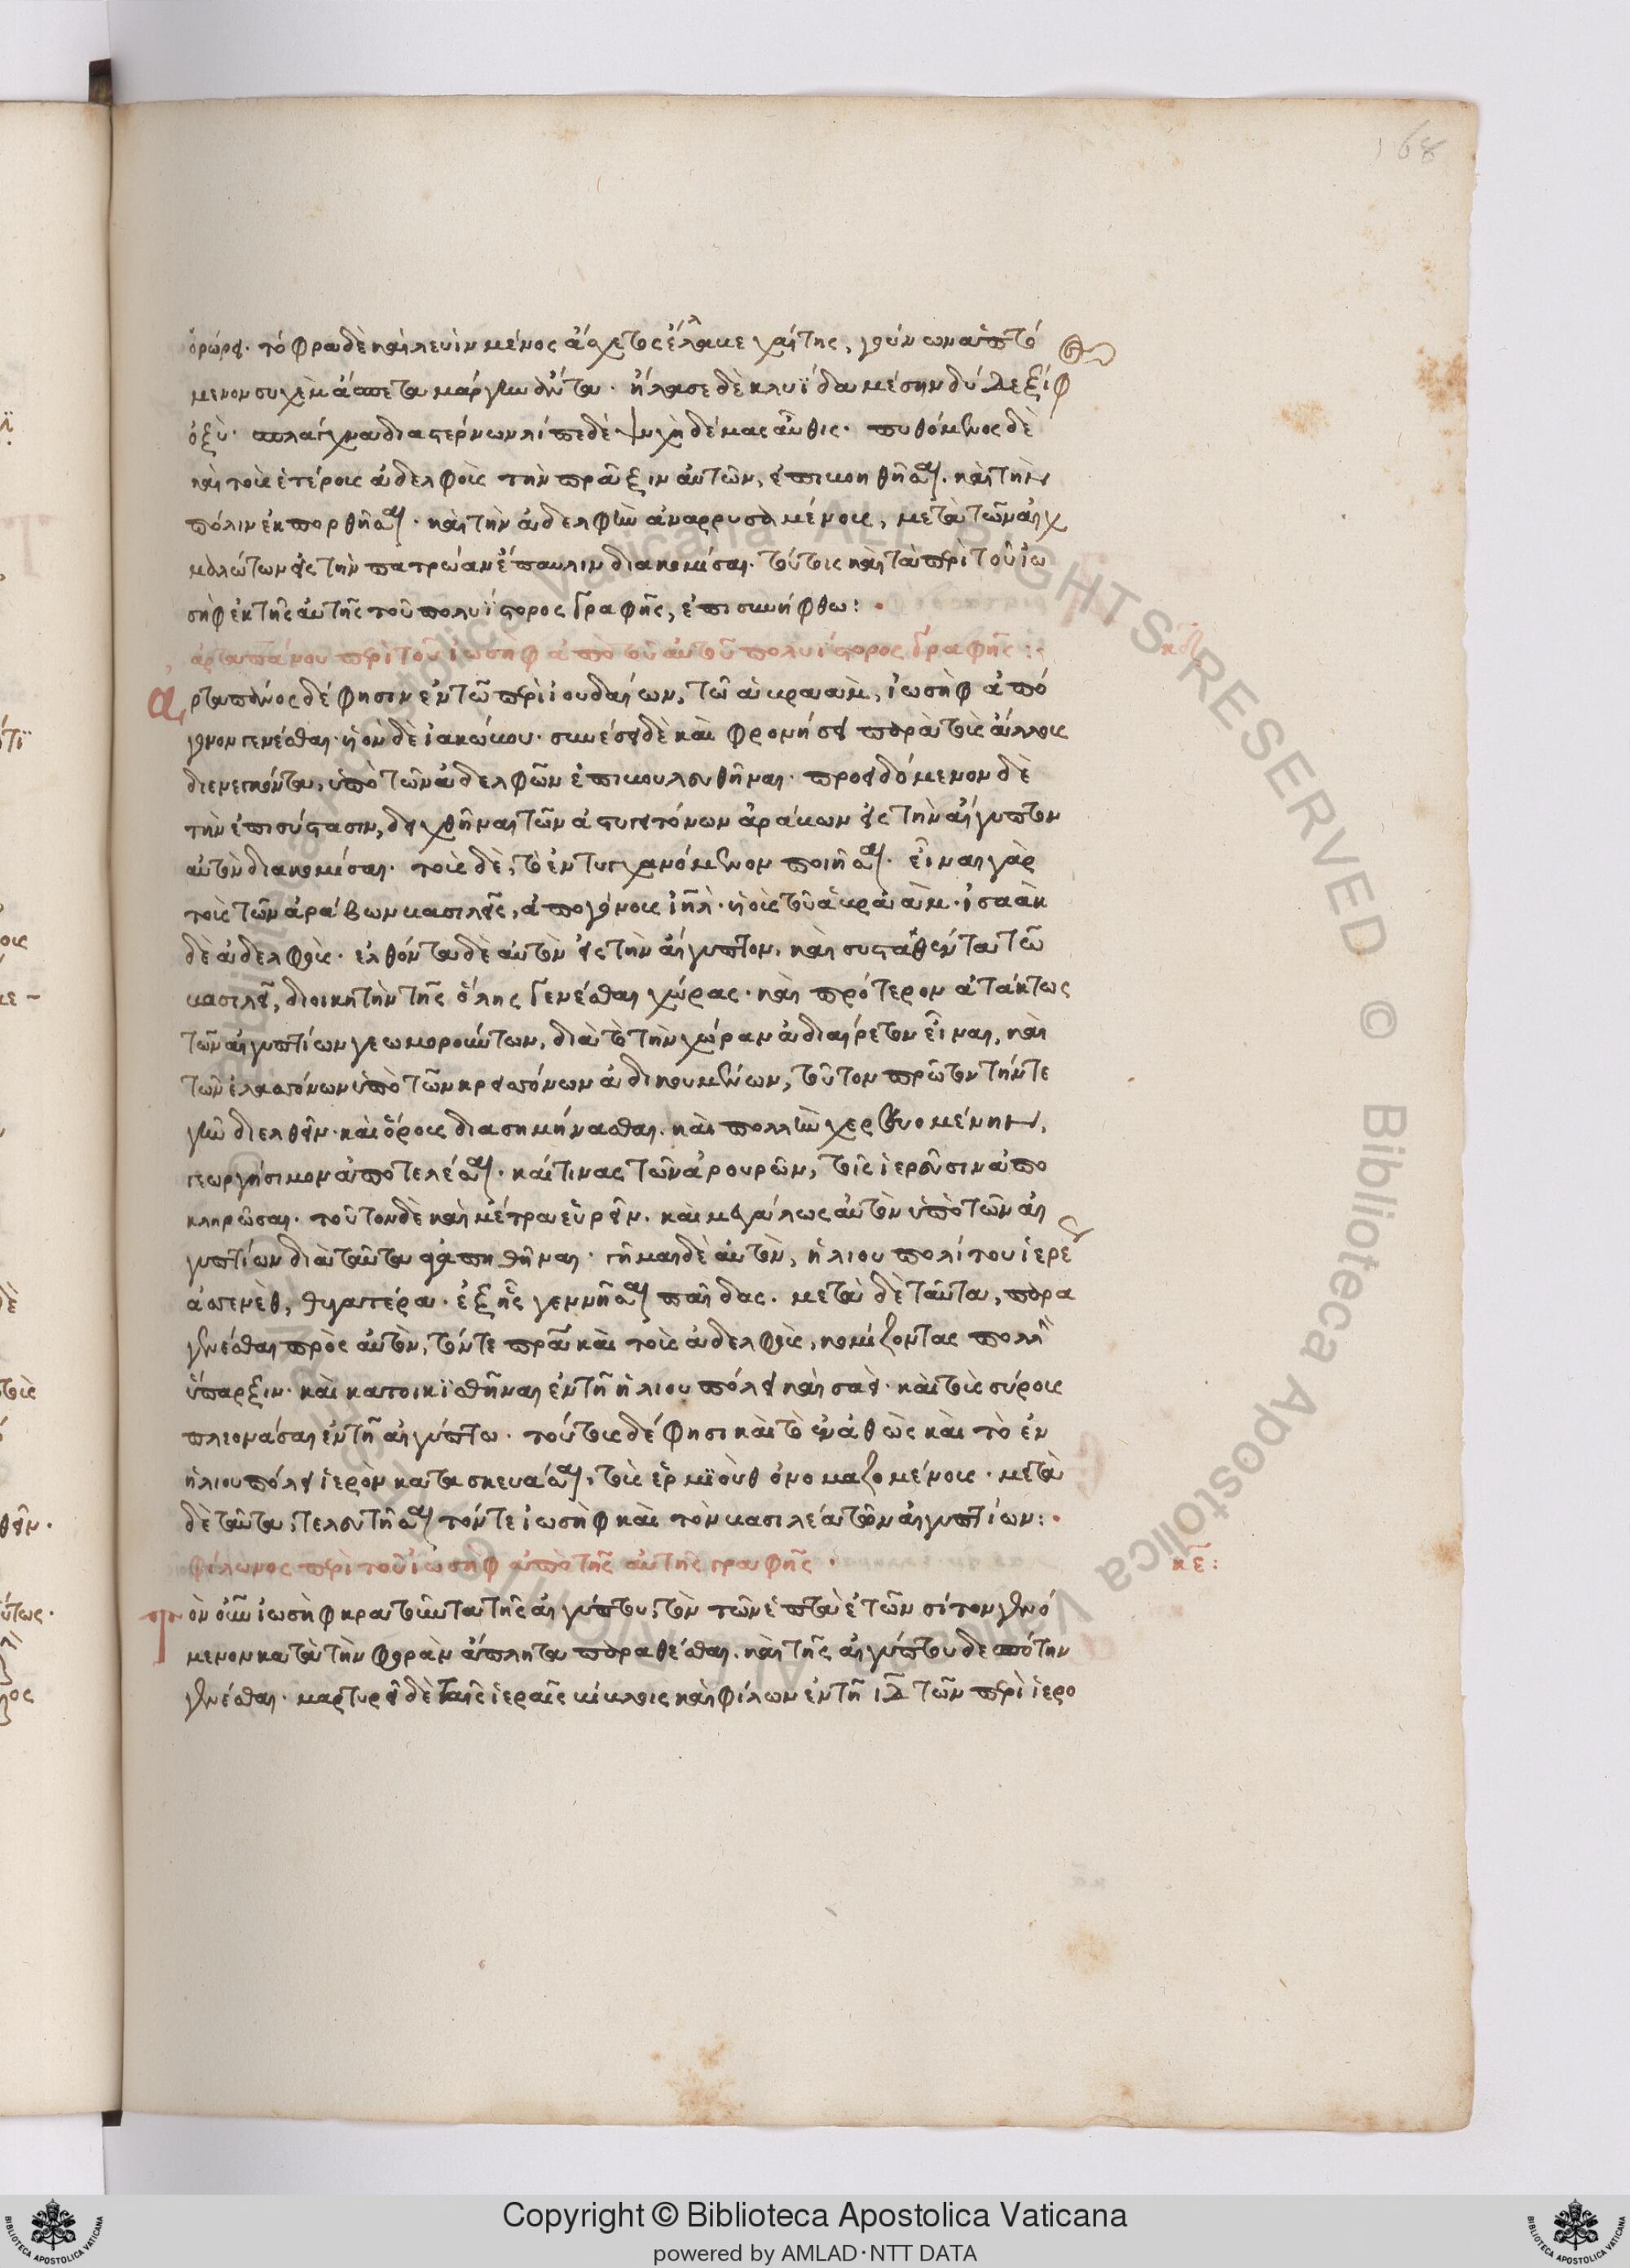 168
ὀρώρει. τόφρα δὲ καὶ λευὶν μένος ἄσχετος ἔλλαβε χαίτης, γούνων ἁπτό
μενον συχὲμ ἄσπετα μαργήναντα. ἤλασε δὲ κληῖδα μέσην δῦ δὲ ξίφ
ὀξὺ. σπλάγχνα διὰ στέρνων λίπε δὲ ψυχὴ δέμας αὖθις. πυθόμενος δὲ
καὶ τοὺς ἑτέρους ἀδελφοὺς τὴν πρᾶξιν αὐτῶν, ἐπιβοηθῆσαι. καὶ τὴν
πόλιν ἐκπορθῆσαι. καὶ τὴν ἀδελφὴν ἀναρρυσαμένους, μετὰ τῶν αἰχ
μαλώτων εἰς τὴν πατρῴαν ἔπαυλιν διακομίσαι. τούτοις καὶ τὰ περὶ τοῦ ἰω
σὴφ ἐκ τῆς αὐτῆς τοῦ πολυΐστορος γραφῆς, ἐπισυνήφθω:
ἀρταπάνου περὶ τοῦ ἰωσὴφ ἀπὸ τοῦ αὐτοῦ πολυίστορος γραφῆς:
κδ
ἀρταπάνος δέ φησιν ἐν τῷ περὶ ἰουδαίων, τῷ ἀβραὰμ, ἰωσὴφ ἀπό
γονον γενέσθαι. υἱὸν δὲ ἰακώβου. συνέσει δὲ καὶ φρονήσει παρὰ τοὺς ἄλλους
διενεγκόντα, ὑπὸ τῶν ἀδελφῶν ἐπιβουλευθῆναι. προειδόμενον δὲ
τὴν ἐπισύστασιν, δεηθῆναι τῶν ἀστυγειτόνων ἀράβων εἰς τὴν αἴγυπτον
αὐτὸν διακομίσαι. τοὺς δὲ, τὸ ἐντυγχανόμενον ποιῆσαι. εἶναι γὰρ
τοὺς τῶν ἀράβων βασιλεῖς, ἀπογόνους ἰηλ. υἱοὺς τοῦ ἀβραάμ. ἰσαὰκ
δὲ ἀδελφοὺς. ἐλθόντα δὲ αὐτὸν εἰς τὴν αἴγυπτον, καὶ συσταθέντα τῷ
βασιλεῖ, διοικητὴν τῆς ὅλης γενέσθαι χώρας. καὶ πρότερον ἀτάκτως
τῶν αἰγυπτίων γεωμορούντων, διὰ τὸ τὴν χώραν ἀδιαίρετον εἶναι, καὶ
τῶν ἐλασσόνων ὑπὸ τῶν κρεισσόνων ἀδικουμένων, τοῦτον πρῶτον τήν τε
γῆν διελθεῖν. καὶ ὅροις διασημήνασθαι. καὶ πολλὴν χερσευομένην,
γεωργήσιμον ἀποτελέσαι. καί τινας τῶν ἀρουρῶν, τοῖς ἱερεῦσιν ἀπο
κληρῶσαι. τοῦτον δὲ καὶ μέτρα εὑρεῖν. καὶ μεγάλως αὐτὸν ὑπὸ τῶν αἰ
γυπτίων διὰ ταῦτα ἀγαπηθῆναι. γῆμαι δὲ αὐτὸν, ἡλιουπολίτου ἱερε
ἀσενὲθ, θυγατέρα. ἐξ ἧς γεννῆσαι παῖδας. μετὰ δὲ ταῦτα, παρα
γενέσθαι πρὸς αὐτὸν, τόν τε πρα καὶ τοὺς ἀδελφοὺς, κομίζοντας πολλὴ
ὕπαρξιν. καὶ κατοικϊσθῆναι ἐν τῇ ἡλίου πόλει καὶ σάει. καὶ τοὺς σύρους
πλεονάσαι ἐν τῇ αἰγύπτω. τούτους δέ φησι καὶ τὸ ἐν ἀθὼς καὶ τὸ ἐν
ἡλιουπόλει ἱερὸν κατασκευάσαι, τοὺς ἑρμϊοὺθ ὀνομαζομένους. μετὰ
δὲ ταῦτα, τελευτῆσαι τόν τε ἰωσὴφ καὶ τὸν βασιλέα τῶν αἰγυπτίων:
φίλωνος περὶ τοῦ ἰωσὴφ ἀπὸ τῆς αὐτῆς γραφῆς.
κε:
τὸν οὖν ἰωσὴφ κρατοῦντα τῆς αἰγύπτου, τὸν τῶν ἑπτὰ ἐτῶν σῖτον γενό
μενον κατὰ τὴν φορὰν ἄπλητα παραθέσθαι. καὶ τῆς αἰγύπτου δεσπότην
γενέσθαι. μαρτυρεῖ δὲ ταῖς ἱεραῖς βίβλοις καὶ φίλων ἐν τῇ ιδ τῶν περὶ ἱερο